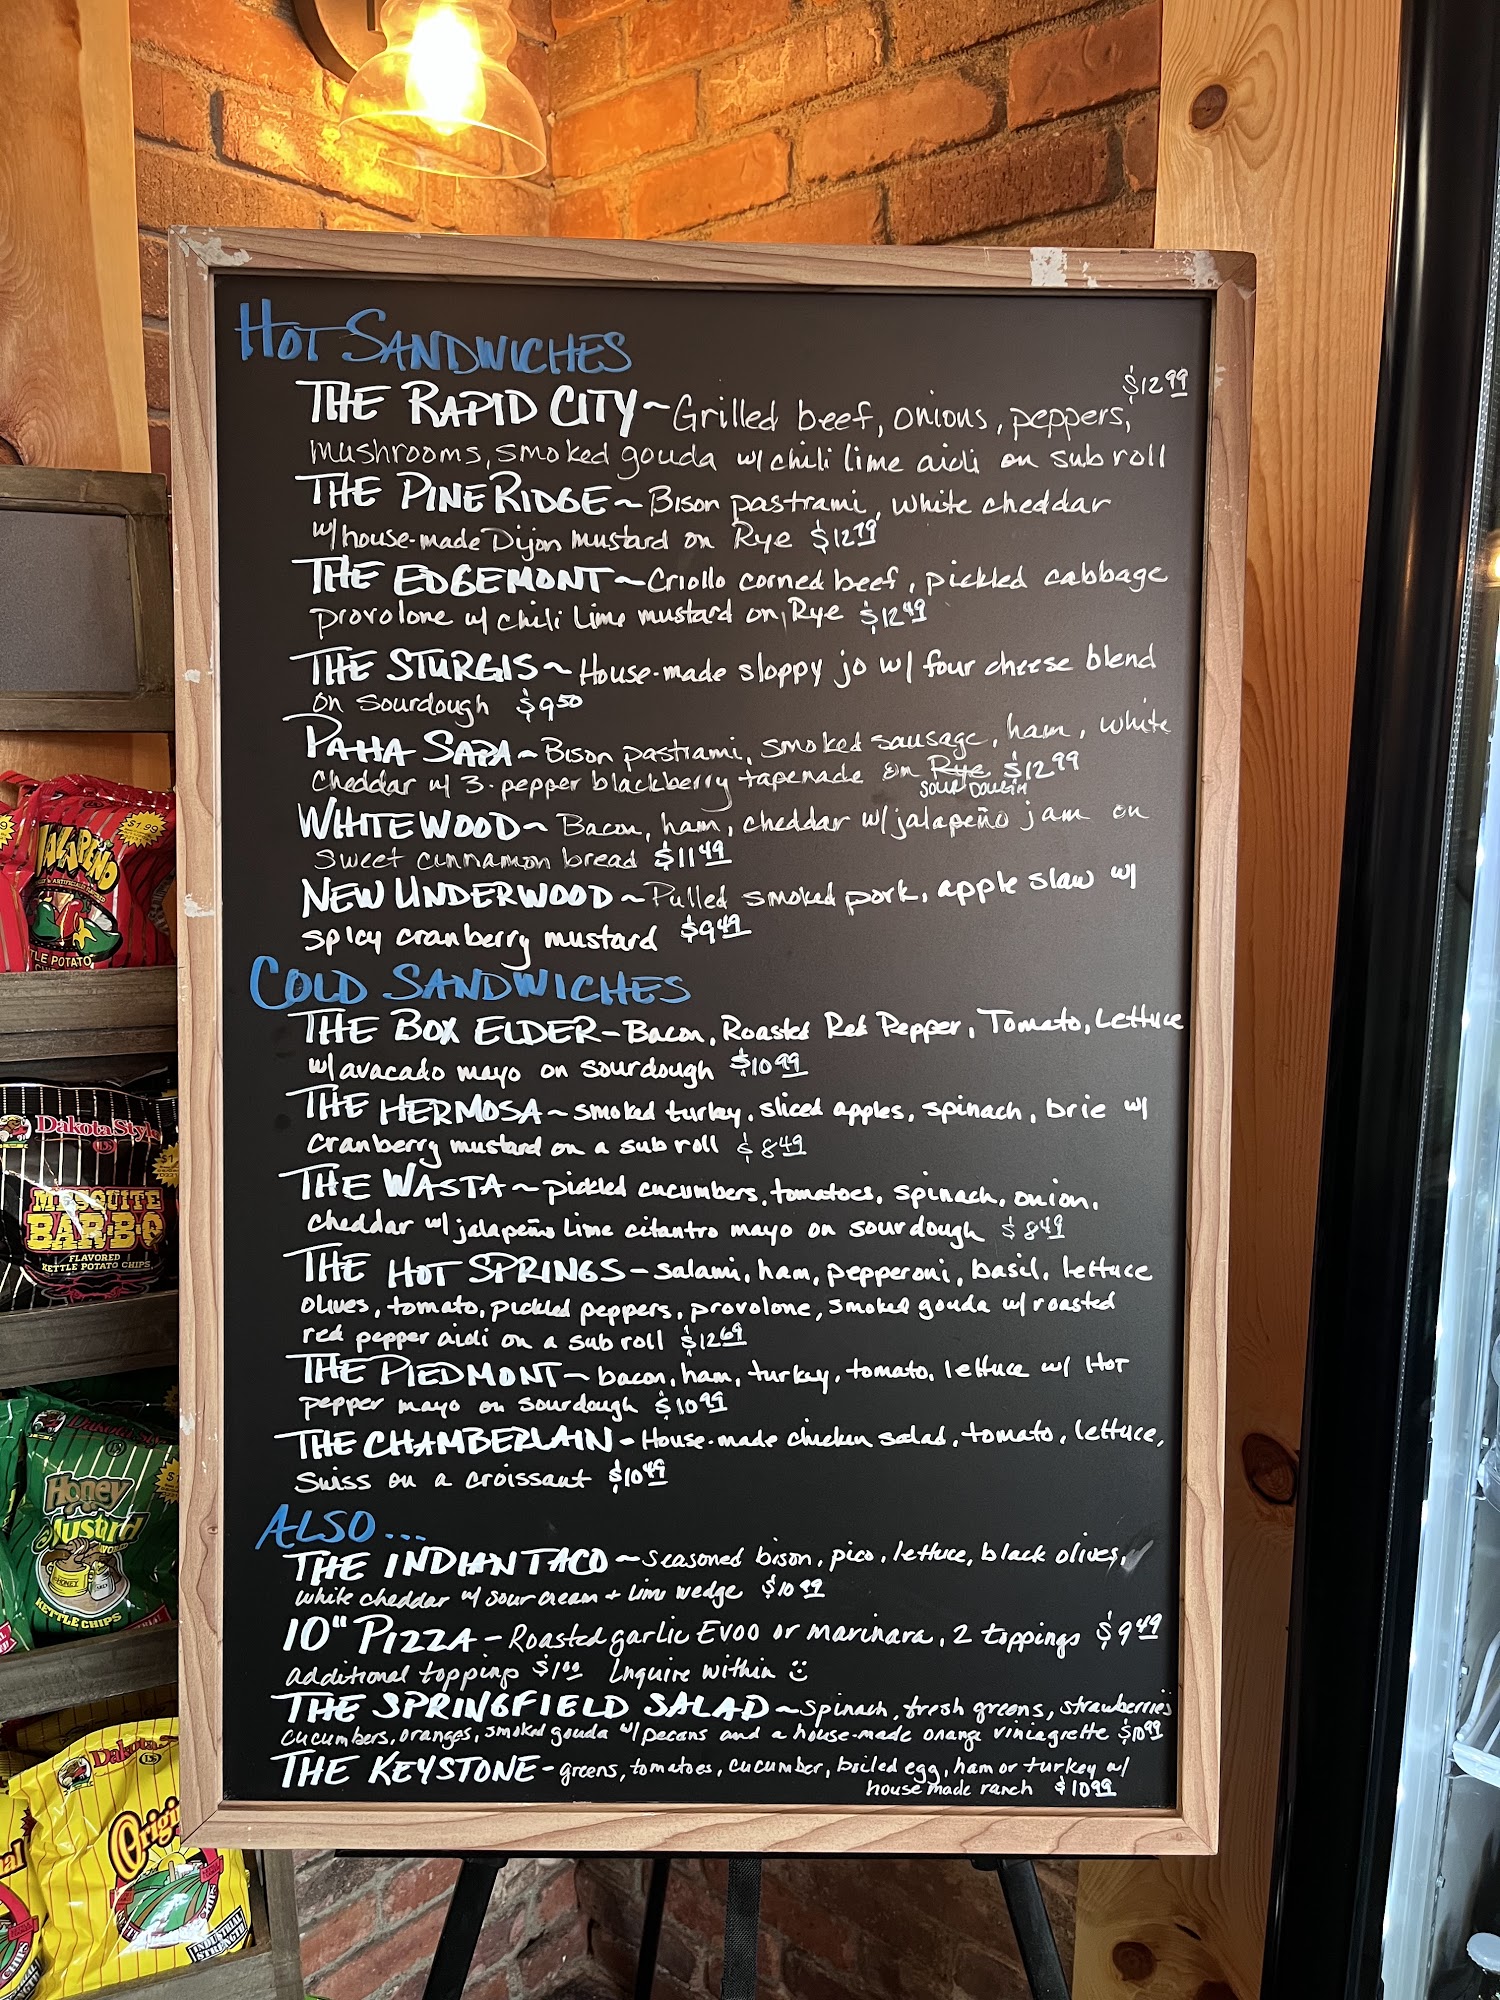 HOT SANDWICHES
$12 99
THE RAPID CITY ~ Grilled beef, onions, peppers,
mushrooms, smoked gouda w/ chili lime aioli on sub roll
THE PINE RIDGE ~ Bison pastrami, white cheddar
w/ house-made Dijon mustard on Rye $12 79
THE EDGEMONT ~ Criollo corned beef, pickled cabbage
provolone w/ chili lime mustard on Rye $12 49
THE STURGIS ~ House-made sloppy jo w/ four cheese blend
on sourdough $9 50
PAHA SAPA ~ Bison pastrami, smoked sausage, ham, white
cheddar w/ 3-pepper blackberry tapenade on Rye $12 99
SOUR DOUGH
WHITEWOOD ~ Bacon, ham, cheddar w/ jalapeño jam on
sweet cinnamon bread $11 49
NEW UNDERWOOD ~ Pulled smoked pork, apple slaw w/
spicy cranberry mustard $9 49
COLD SANDWICHES
THE BOX ELDER - Bacon, Roasted Red Pepper, Tomato, Lettuce
w/ avacado mayo on sourdough $10 99
THE HERMOSA ~ smoked turkey, sliced apples, spinach, brie w/
cranberry mustard on a sub roll $8 49
THE WASTA ~ pickled cucumbers, tomatoes, spinach, onion,
cheddar w/ jalapeño lime cilantro mayo on sourdough $8 49
THE HOT SPRINGS - salami, ham, pepperoni, basil, lettuce
olives, tomato, pickled peppers, provolone, smoked gouda w/ roasted
red pepper aioli on a sub roll $12 69
THE PIEDMONT ~ bacon, ham, turkey, tomato, lettuce w/ Hot
pepper mayo on sourdough $10 99
THE CHAMBERLAIN - House-made chicken salad, tomato, lettuce,
Swiss on a croissant $10 49
ALSO...
THE INDIAN TACO ~ seasoned bison, pico, lettuce, black olives,
white cheddar w/ sour cream + lime wedge $10 99
10" PIZZA - Roasted garlic EVOO or marinara, 2 toppings $9 49
additional topping $1 00 Inquire within
THE SPRINGFIELD SALAD ~ Spinach, fresh greens, strawberries
cucumbers, oranges, smoked gouda w/ pecans and a house-made orange viniagrette $10 99
THE KEYSTONE - greens, tomatoes, cucumber, boiled egg, ham or turkey w/
house made ranch $10 99
$1.99
JALAPEÑO
Dakota Style
MESQUITE
BAR-B-Q
FLAVORED
KETTLE POTATO CHIPS
Dakota Style
Honey
Mustard
HONEY
KETTLE CHIPS
INDUSTRIAL
STRENGTH